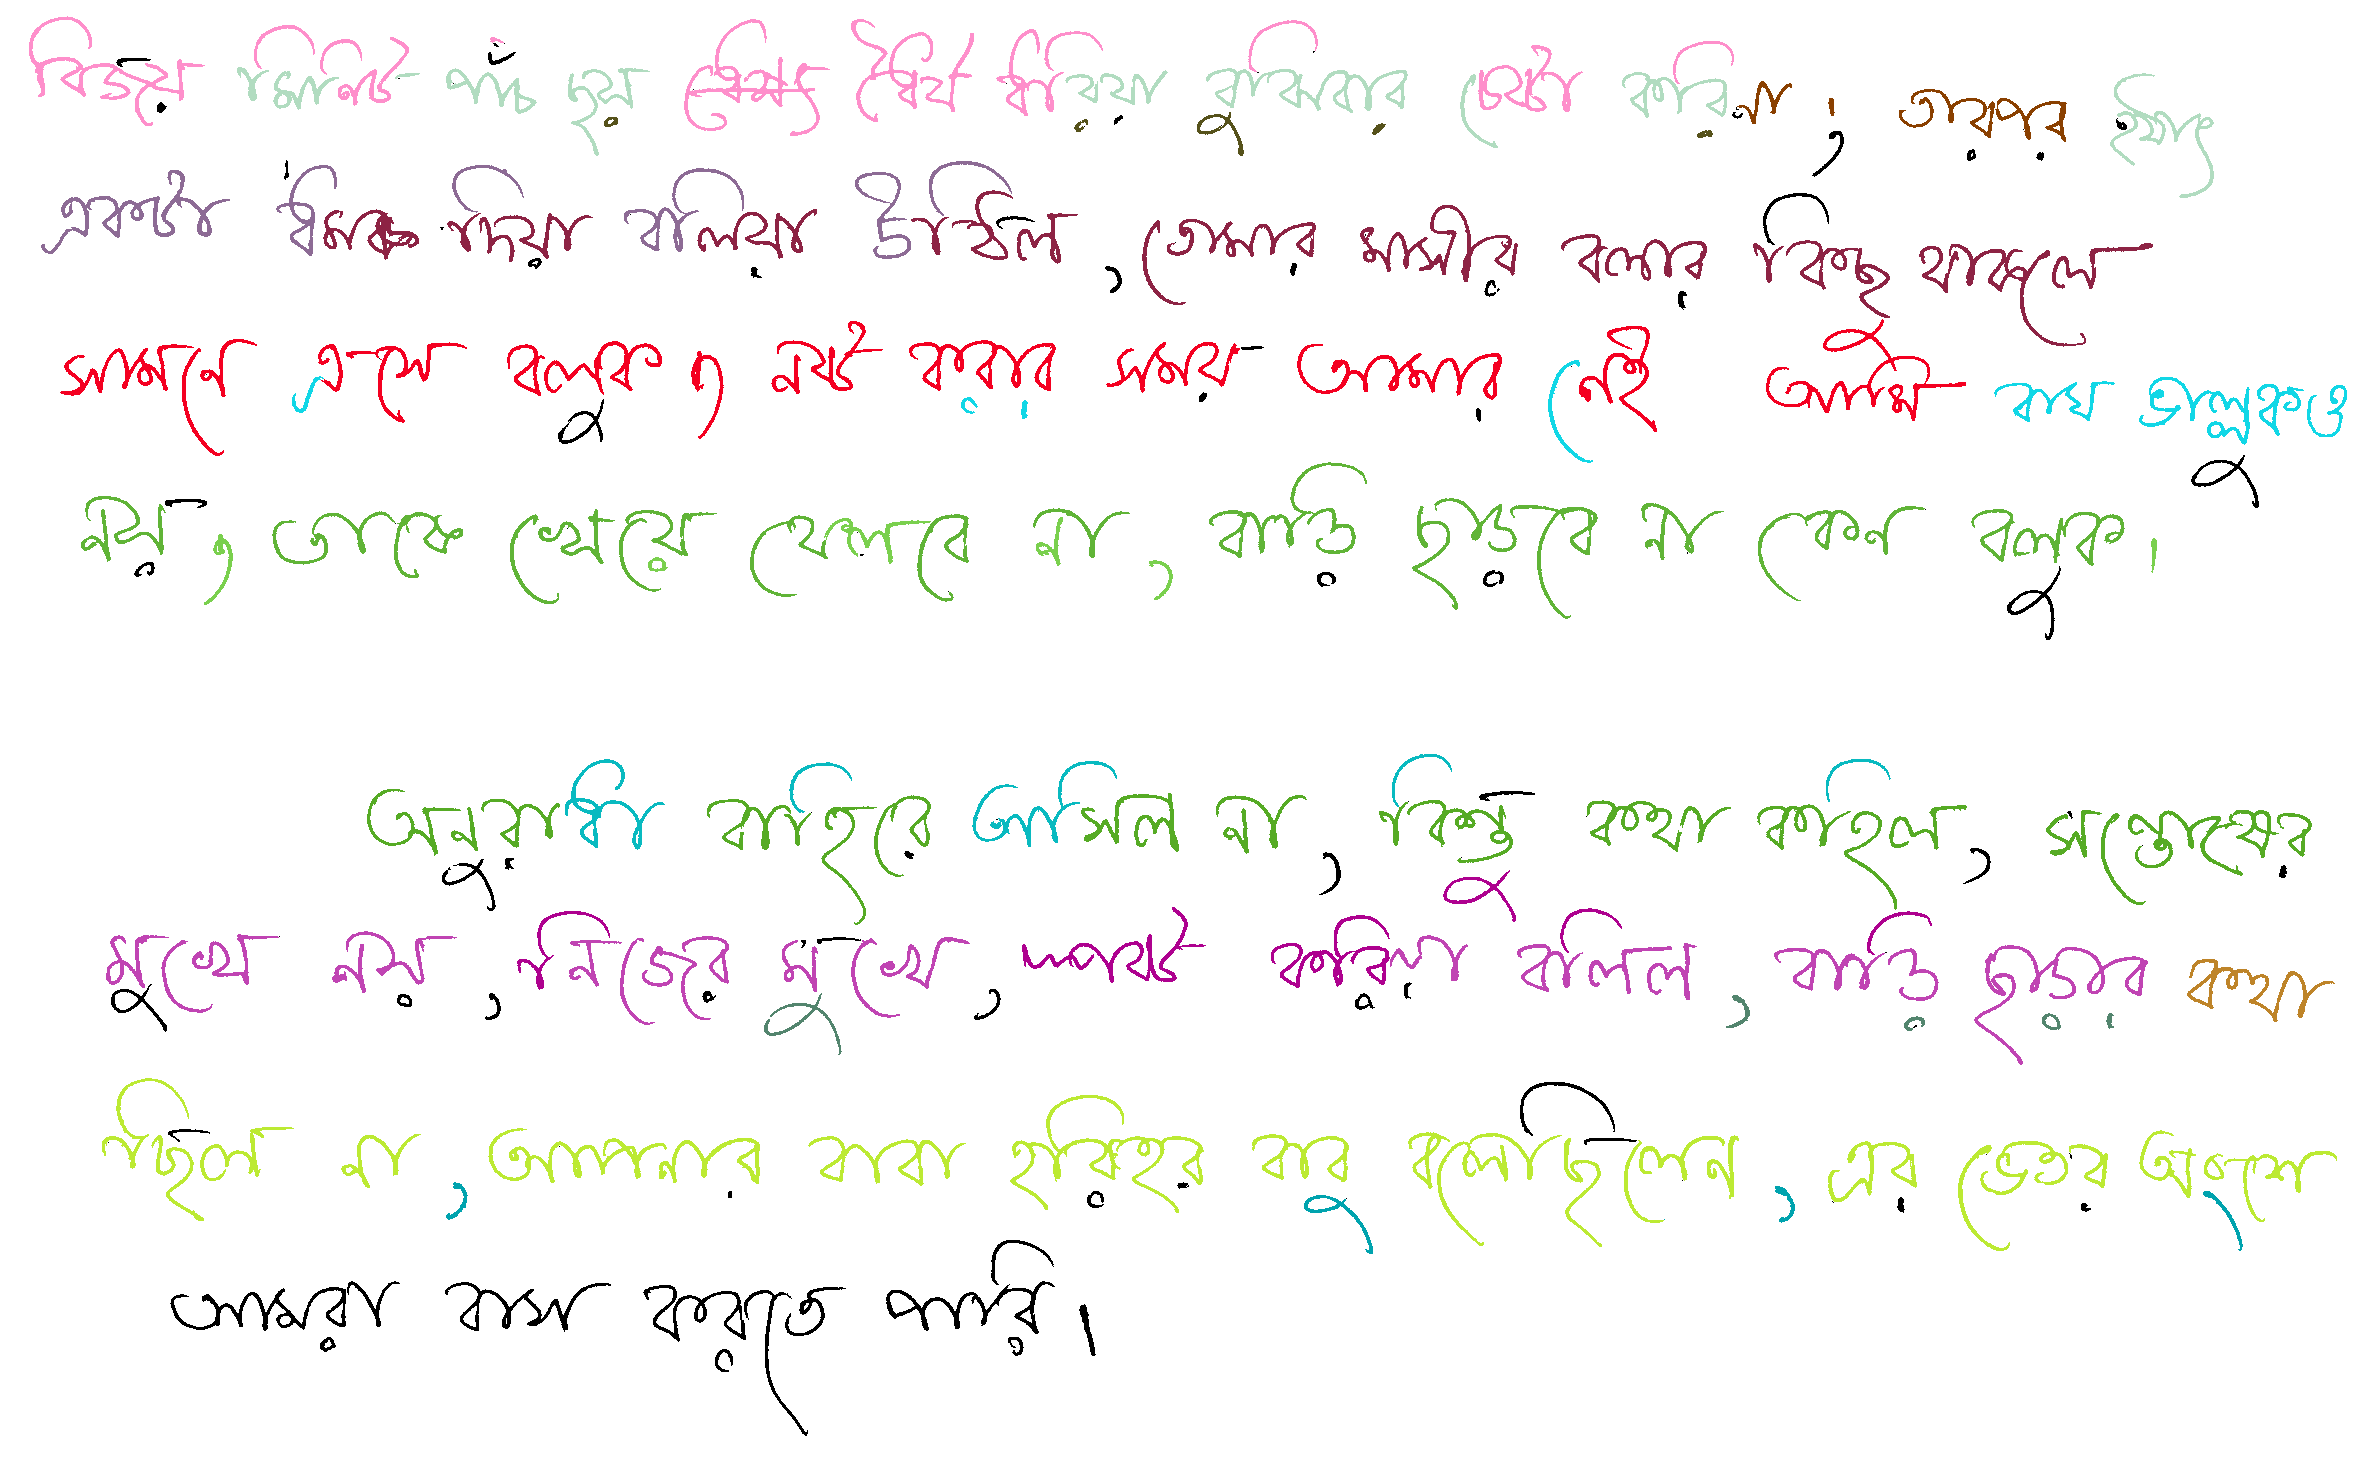 বিজয় মিনিট পাঁচ ছয় ধৈর্য ধরিয়া বুঝিবার চেষ্টা করিনা ; তারপর হঠাৎ
একটা ধমক দিয়া বলিয়া উঠিল , তোমার মাসীর বলার কিছু থাকলে
সামনে এসে বলুক , নষ্ট করার সময় আমার নেই আমি বাঘ ভাল্লুকও
নয় , তাকে খেয়ে ফেলবে না , বাড়ি ছাড়বে না কেন বলুক ।
অনুরাধা বাহিরে আসিল না , কিন্তু কথা কহিল , সন্তোষের
মুখে নয় , নিজের মুখে , স্পষ্ট করিয়া বলিল , বাড়ি ছাড়ার কথা
ছিল না , আপনার বাবা হরিহর বাবু বলেছিলেন , এর ভেতর অংশে
আমরা বাস করতে পারি ।